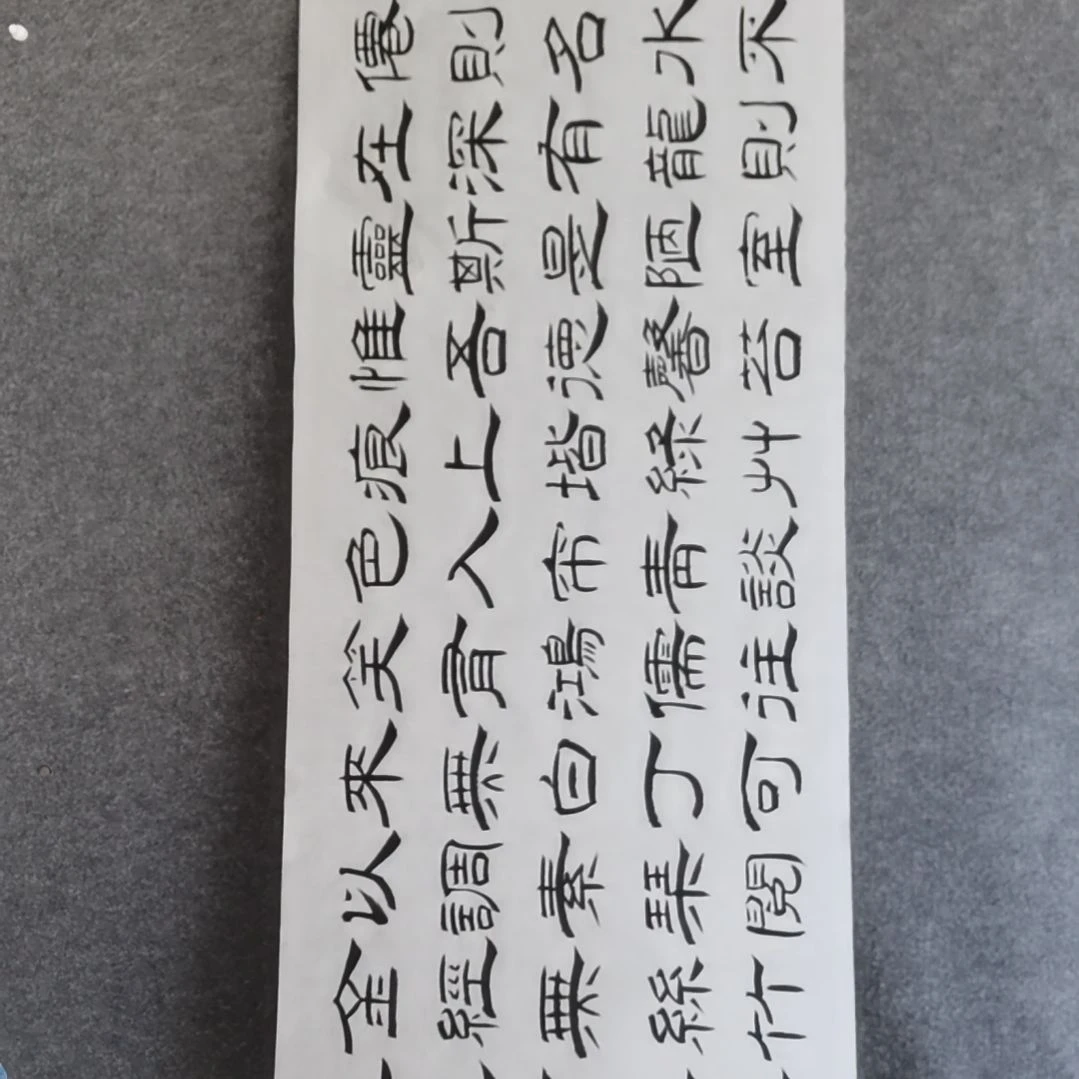 僊則名水不
在深有龍則
靈斯是陋室
惟吾德馨苔
痕上堦綠艸
色入帘青談
笑有鴻儒往
來無白丁可
以調素琴閱
金經無絲竹